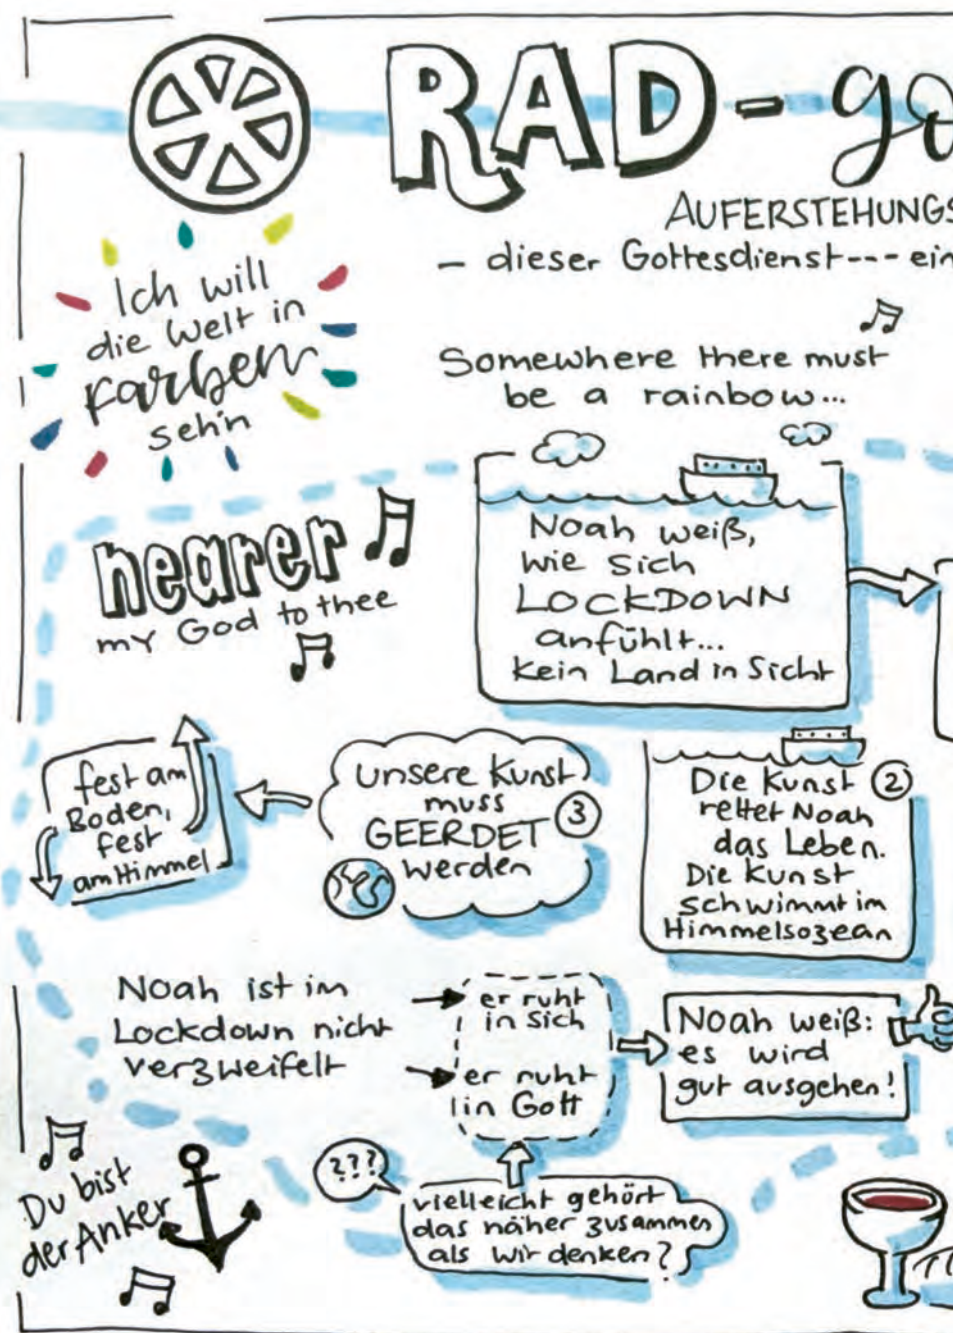 RAD-go
AUFERSTEHUNGS
- dieser Gottesdienst--- ein
Ich will
die Welt in
Farben
seh'n
Somewhere there must
be a rainbow...
nearer
my God to thee
Noah weiß,
wie sich
LOCKDOWN
anfühlt...
Kein Land in Sicht
fest am
Boden,
fest
am Himmel
Unsere Kunst
muss
GEERDET
werden
3
Die Kunst 2
rettet Noah
das Leben.
Die Kunst
schwimmt im
Himmelsozean
Noah ist im
Lockdown nicht
verzweifelt
er ruht
in sich
er ruht
in Gott
Noah weiß:
es wird
gut ausgehen!
Du bist
der Anker
???
vielleicht gehört
das näher zusammen
als wir denken?